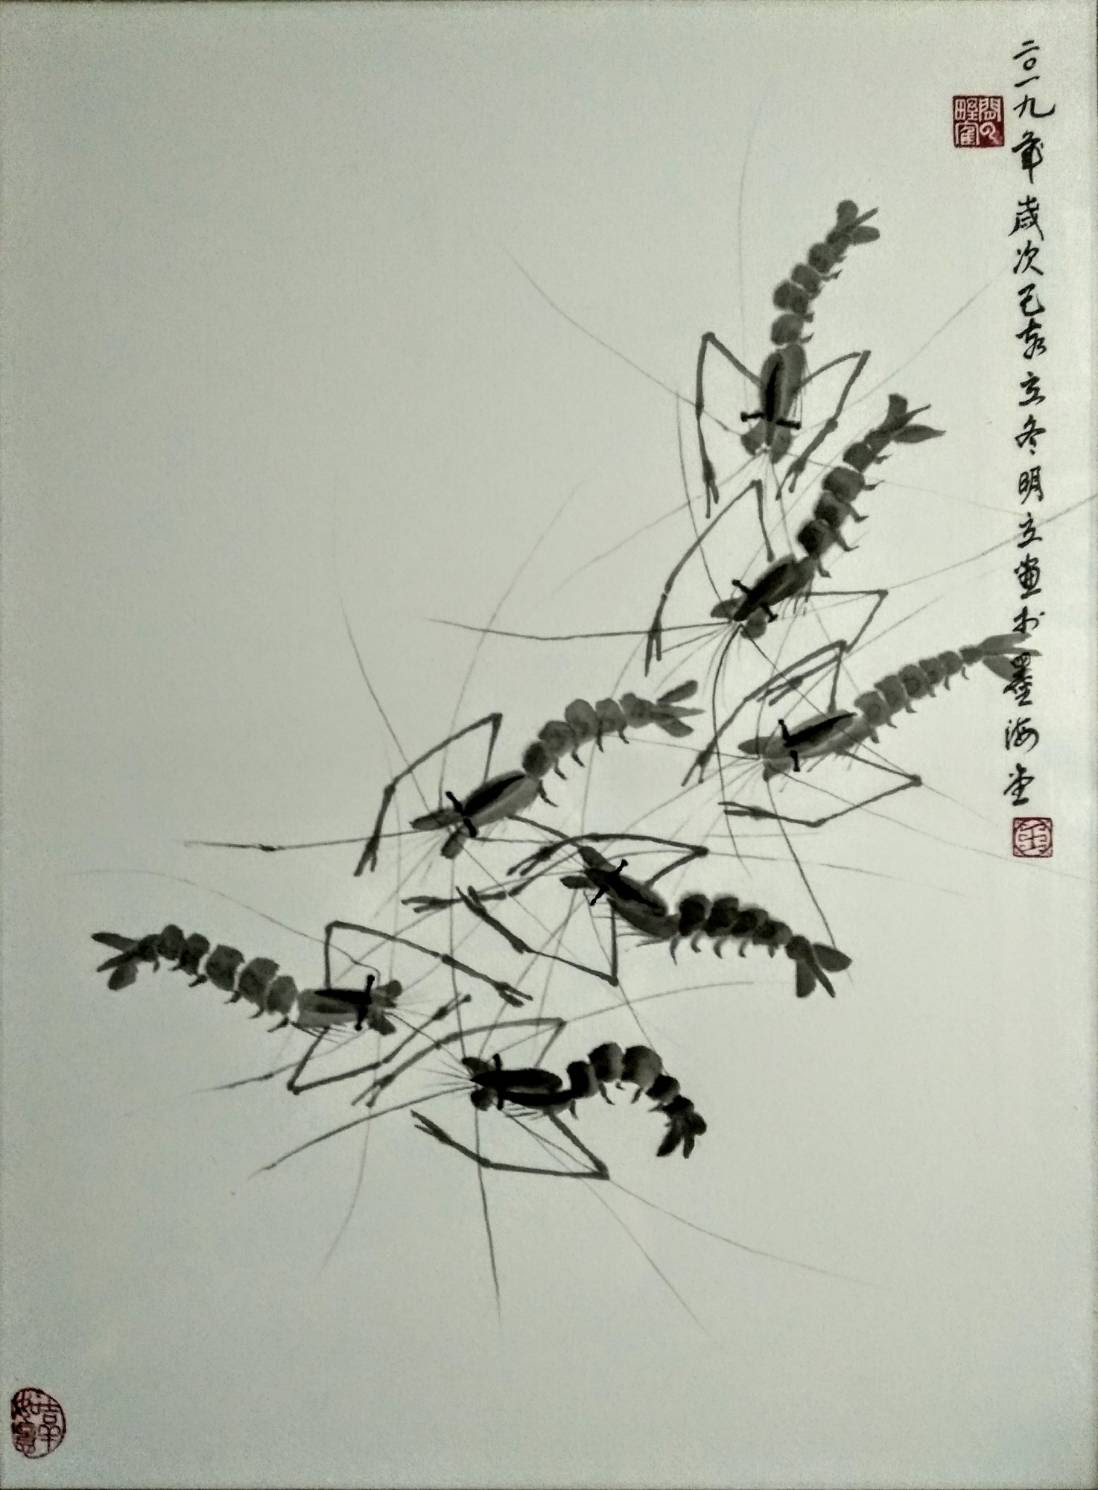 二〇一九年歲次己亥立冬明立画於墨海堂